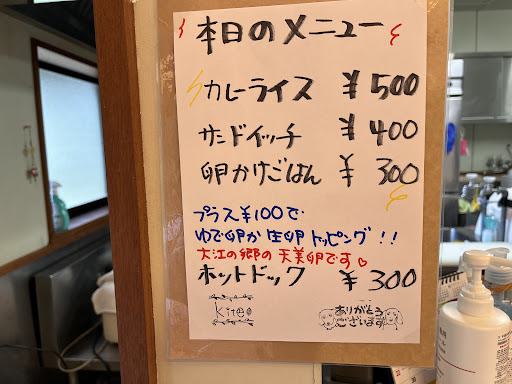 本日のメニュー
カレーライス ¥500
サンドイッチ ¥400
卵かけごはん ¥300
プラス¥100で
ゆで卵か生卵トッピング!!
大江の郷の天美卵です♡
ホットドック ¥300
Kiteo
ありがとう
ございます